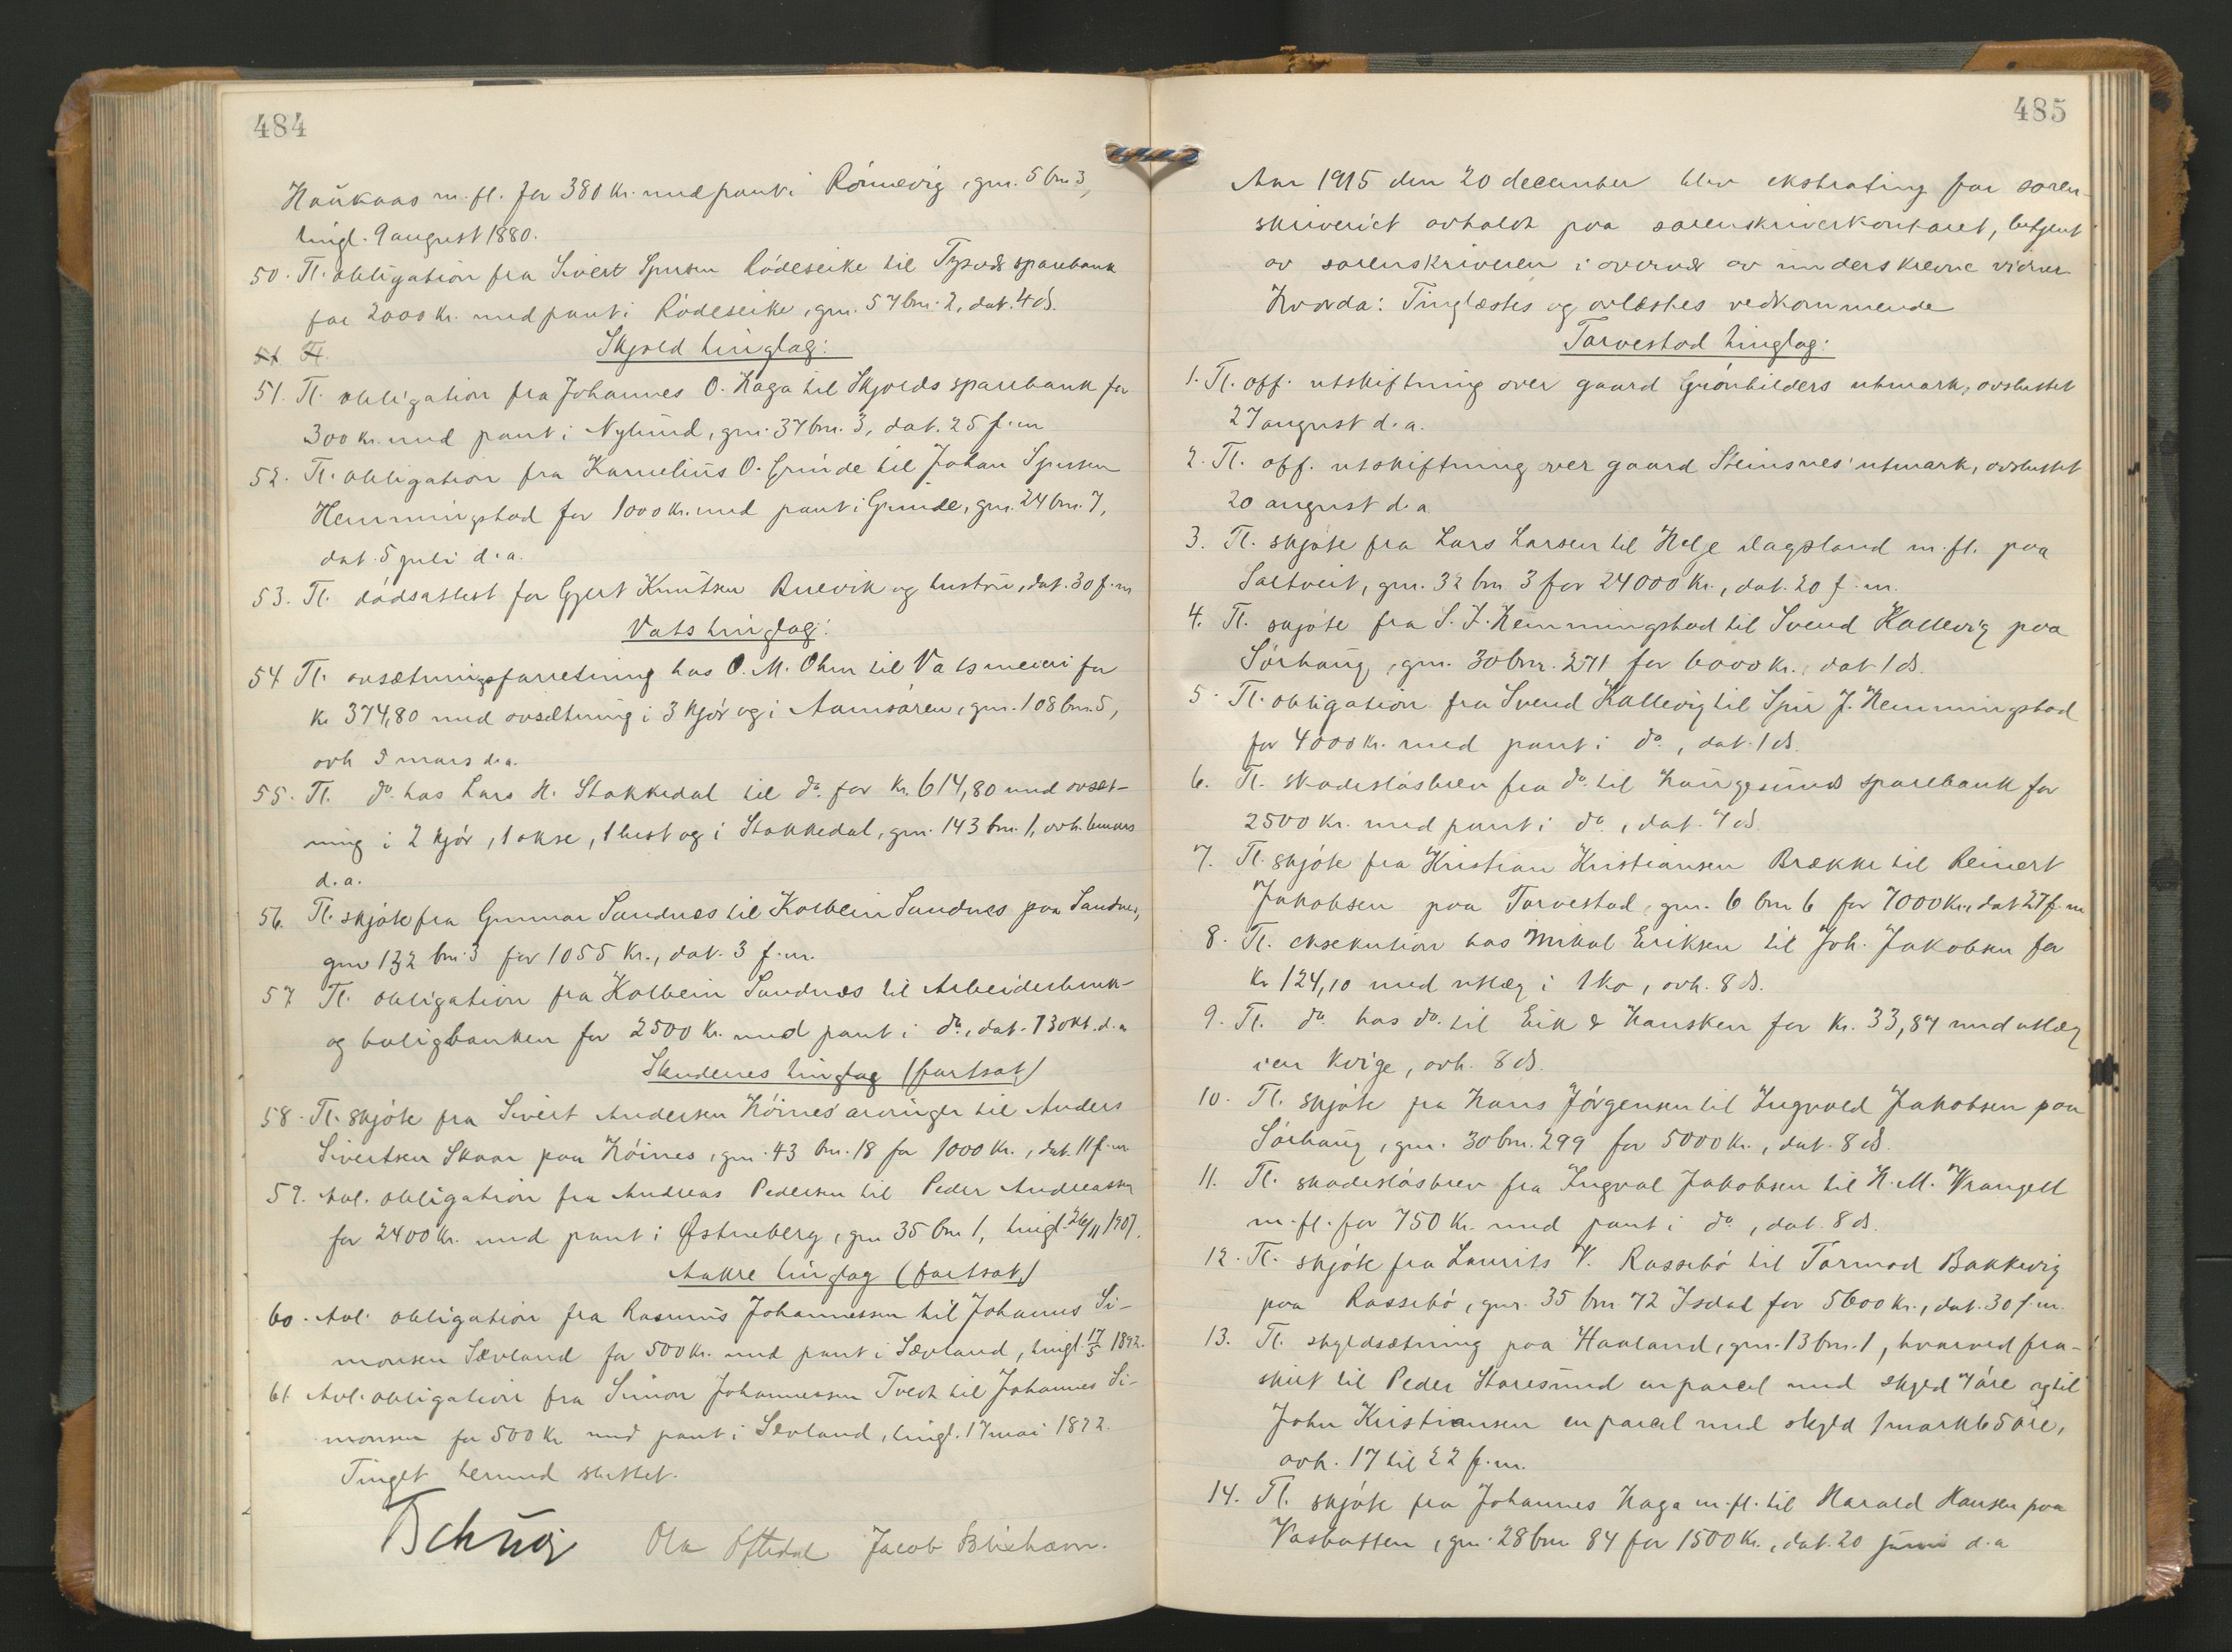 484
Haukaas m. fl. for 380 kr. med pant i Rönnevig, gnr. 5 bnr 3,
tingl. 9 august 1880.
50. Tl. obligation fra Sivert Spersen Rödeseike til Tysvær sparebank
for 2000 kr. med pant i Rödeseike, gnr. 57 bnr. 2, dat. 4 ds.
51. Tl.
Skjold tinglag:
51. Tl. obligation fra Johannes O. Haga til Skjolds sparebank for
300 kr. med pant i Nylund, gnr. 37 bnr. 3, dat. 25 f.m
52. Tl. obligation fra Kornelius O. Grinde til Johan Spersen
Hemmingstad for 1000 kr. med pant i Grinde, gnr. 24 bnr. 7,
dat. 5 juli d.a.
53. Tl. dödsattest for Gjert Knutsen Buevik og hustru, dat. 30 f.m
Vats tinglag:
54 Tl. avsætningsforretning hos O. M. Ohm til Vats meieri for
kr 374,80 med avsætning i 3 kjör og i Aamsåren, gnr. 108 bnr. 5,
avh 5 mars d.a.
55. Tl. do. hos Lars H. Stakkedal til do. for kr. 614,80 med avsæt-
ning i 2 kjör, 1 okse, 1 hest og i Stakkedal, gnr. 143 bnr. 1, avh. 6 mars
d.a.
56. Tl. skjöte fra Gunnar Sandnes til Kolbein Sandnes paa Sandnes,
gnr 132 bnr. 3 for 1055 kr., dat. 3 f.m.
57 Tl. obligation fra Kolbein Sandnæs til Arbeiderbruk-
og boligbanken for 2500 kr. med pant i do., dat. 13 okt. d.a
Skudenes tinglag (fortsat)
58. Tl. skjöte fra Sivert Andersen Höines' arvinger til Anders
Sivertsen Skaar paa Höines, gnr. 43 bnr. 18 for 1000 kr., dat. 11 f.m
59. Avl. obligation fra Andreas Pedersen til Peder Andreassen
for 2400 kr. med pant i Østneberg, gnr 35 bnr 1, tingl. 26/11 1907.
Aakre tinglag (fortsat)
60. Avl. obligation fra Rasmus Johannessen til Johannes Si-
monsen Sævland for 500 kr. med pant i Sævland, tingl. 17/5 1892.
61 Avl. obligation fra Simon Johannessen Tvedt til Johannes Si-
monsen for 500 kr med pant i Sævland, tingl. 17 mai 1892.
Tinget hermed sluttet.
Ola Oftedal Jacob
485
Aar 1915 den 20 december blev ekstrating for soren-
skriveriet avholdt paa sorenskriverkontoret, betjent
av sorenskriveren i overvær av underskrevne vidner
Hvorda: Tinglæstes og avlæstes vedkommende
Torvestad tinglag:
1. Tl. off. utskiftning over gaard Grönhilders utmark, avsluttet
27 august d.a.
2. Tl. off. utskiftning over gaard Steinsnes' utmark, avsluttet
20 august d.a
3. Tl. skjöte fra Lars Larsen til Helje Dagsland m. fl. paa
Saltveit, gnr. 32 bnr 3 for 24000 kr., dat. 20 f.m.
4. Tl. skjöte fra S. J. Hemmingstad til Svend Kallevig paa
Sörhaug, gnr. 30 bnr. 271 for 6000 kr., dat 1 ds.
5. Tl. obligation fra Svend Kallevig til Spir J. Hemmingstad
for 4000 kr. med pant i do., dat. 1 ds.
6. Tl. skadeslösbrev fra do. til Haugesunds sparebank for
2500 kr. med pant i do., dat. 7 ds.
7. Tl. skjöte fra Kristian Kristiansen Brække til Reinert
Jakobsen paa Torvestad, gnr. 6 bnr 6 for 7000 kr., dat 27 f.m
8. Tl. eksekution hos Mikal Eriksen til Joh. Jakobsen for
kr 124,10 med utlæg i 1 ko, avh. 8 ds.
9. Tl. do. hos do. til Eik & Hausken for kr. 33,87 med utlæg
i en kvige, avh. 8 ds.
10. Tl. skjöte fra Hans Jörgensen til Ingvald Jakobsen paa
Sörhaug, gnr. 30 bnr. 299 for 5000 kr., dat. 8 ds
11. Tl. skadeslösbrev fra Ingval Jakobsen til H. M. Wrangell
m. fl. for 750 kr. med pant i do, dat. 8 ds.
12. Tl. skjöte fra Laurits V. Rossebö til Tormod Bakkevig
paa Rossebö, gnr. 35 bnr 72 Isdal for 5600 kr., dat. 30 f.m.
13. Tl. skyldsætning paa Haaland, gnr. 13 bnr. 1, hvorved fra-
skilt til Peder Storesund en parcel med skyld 7 öre og til
John Kristiansen en parcel med skyld 1 mark 65 öre,
avh. 17 til 22 f.m.
14. Tl. skjöte fra Johannes Haga m. fl. til Harald Hansen paa
Vasbotten, gnr. 28 bnr 84 for 1500 kr., dat. 20 juni d.a